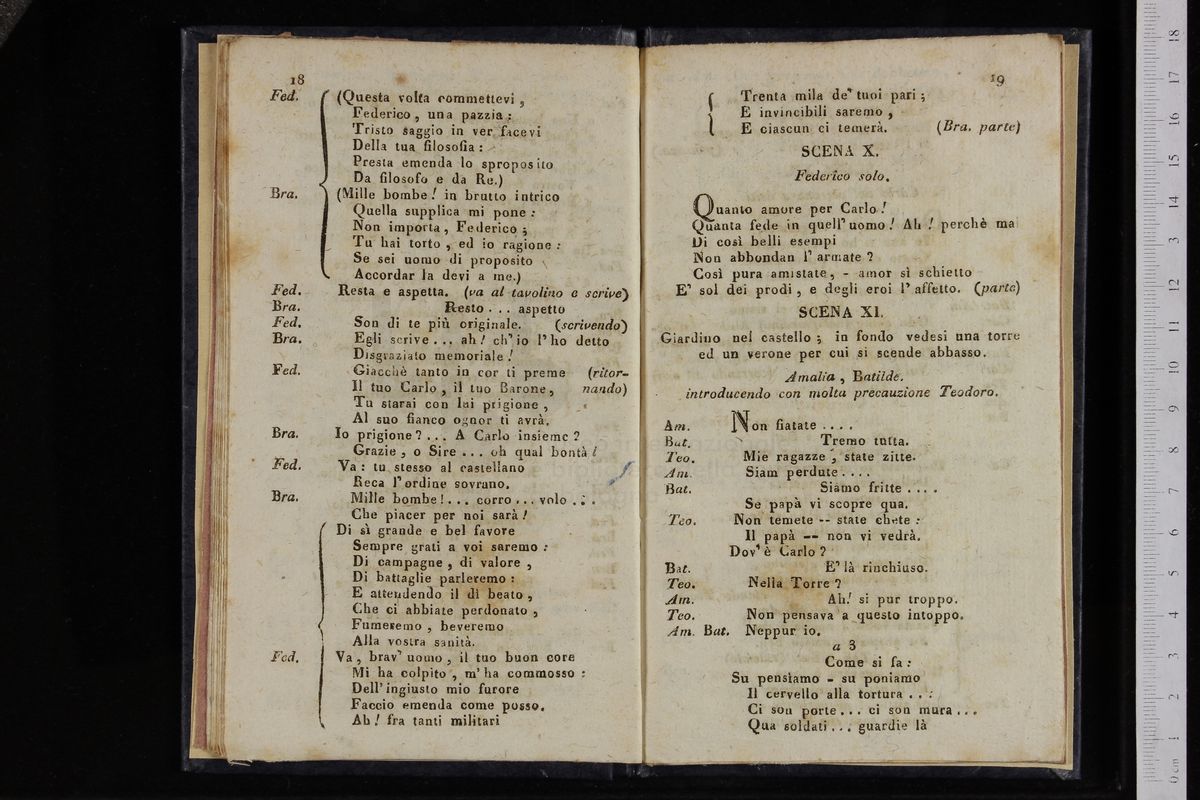 18
Fed. (Questa volta commettevi ,
Federico , una pazzia :
Tristo saggio in ver facevi
Della tua filosofia :
Presta emenda lo sproposito
Da filosofo e da Re.)
Bra. (Mille bombe ! in brutto intrico
Quella supplica mi pone :
Non importa , Federico ;
Tu hai torto , ed io ragione :
Se sei uomo di proposito
Accordar la devi a me.)
Fed. Resta e aspetta. (va al tavolino e scrive)
Bra. Resto . . . aspetto
Fed. Son di te più originale. (scrivendo)
Bra. Egli scrive . . . ah ! ch' io l' ho detto
Disgraziato memoriale !
Fed. Giacchè tanto in cor ti preme (ritor-
Il tuo Carlo , il tuo Barone , nando)
Tu starai con lui prigione ,
Al suo fianco ognor ti avrà.
Bra. Io prigione ? . . . A Carlo insieme ?
Grazie , o Sire . . . oh qual bontà !
Fed. Va : tu stesso al castellano
Reca l' ordine sovrano.
Bra. Mille bombe ! . . . corro . . . volo . . .
Che piacer per noi sarà !
Di sì grande e bel favore
Sempre grati a voi saremo :
Di campagne , di valore ,
Di battaglie parleremo :
E attendendo il dì beato ,
Che ci abbiate perdonato ,
Fumeremo , beveremo
Alla vostra sanità.
Fed. Va , brav' uomo , il tuo buon core
Mi ha colpito , m' ha commosso :
Dell' ingiusto mio furore
Faccio emenda come posso.
Ah ! fra tanti militari
19
Trenta mila de' tuoi pari ;
E invincibili saremo ,
E ciascun ci temerà. (Bra. parte)
SCENA X.
Federico solo.
Quanto amore per Carlo !
Quanta fede in quell' uomo ! Ah ! perchè mai
Di così belli esempi
Non abbondan l' armate ?
Così pura amistate , - amor sì schietto
E' sol dei prodi , e degli eroi l' affetto. (parte)
SCENA XI.
Giardino nel castello ; in fondo vedesi una torre
ed un verone per cui si scende abbasso.
Amalia , Batilde.
introducendo con molta precauzione Teodoro.
Am. Non fiatate . . . .
Bat. Tremo tutta.
Teo. Mie ragazze , state zitte.
Am. Siam perdute . . . .
Bat. Siamo fritte . . . .
Se papà vi scopre qua.
Teo. Non temete -- state chete :
Il papà -- non vi vedrà.
Dov' è Carlo ?
Bat. E' là rinchiuso.
Teo. Nella Torre ?
Am. Ah ! si pur troppo.
Teo. Non pensava a questo intoppo.
Am. Bat. Neppur io.
a 3
Come si fa :
Su pensiamo - su poniamo
Il cervello alla tortura . . :
Ci son porte . . . ci son mura . . .
Qua soldati . . . guardie là
0 cm 1 2 3 4 5 6 7 8 9 10 11 12 13 14 15 16 17 18